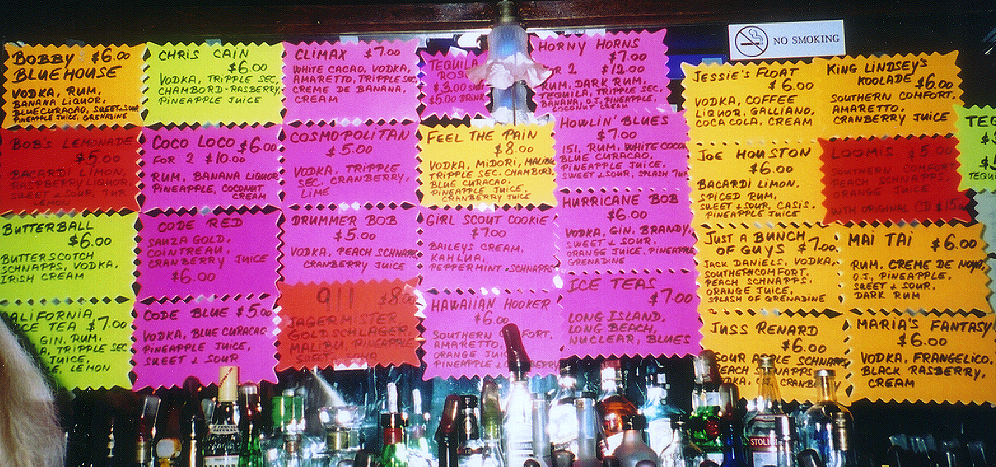 BOBBY $6.00
BLUEHOUSE
VODKA, RUM,
BANANA LIQUOR,
BLUE CURACAO, SWEET & SOUR
PINEAPPLE JUICE, GRENADINE
CHRIS CAIN
$6.00
VODKA, TRIPPLE SEC,
CHAMBORD-RASBERRY,
PINEAPPLE JUICE
CLIMAX $7.00
WHITE CACAO, VODKA,
AMARETTO, TRIPPLE SEC
CREME DE BANANA,
CREAM
TEQUILA
HORNY HORNS
$7.00
FOR 2 $12.00
RUM, DARK RUM,
TEQUILA, TRIPPLE SEC,
BANANA, O.J., PINEAPPLE,
COCONUT CREAM
NO SMOKING
JESSIE'S FLOAT
$6.00
VODKA, COFFEE
LIQUOR, GALLIANO,
COCA COLA, CREAM
KING LINDSEY'S
KOOLADE $6.00
SOUTHERN COMFORT,
AMARETTO,
CRANBERRY JUICE
BOB'S LEMONADE
$5.00
BACARDI LIMON,
RASPBERRY LIQUOR,
COCO LOCO $6.00
FOR 2 $10.00
RUM, BANANA LIQUOR
PINEAPPLE, COCONUT
CREAM
COSMOPOLITAN
$5.00
VODKA, TRIPPLE
SEC, CRANBERRY,
LIME
FEEL THE PAIN
$8.00
VODKA, MIDORI, MALIBU,
TRIPPLE SEC, CHAMBORD,
BLUE CURACAO,
PINEAPPLE JUICE,
CRANBERRY JUICE
HOWLIN' BLUES
$7.00
151, RUM, WHITE COCO
BLUE CURACAO,
PINEAPPLE JUICE,
SWEET & SOUR, SPLASH 7UP
JOE HOUSTON
$6.00
BACARDI LIMON,
SPICED RUM,
SWEET & SOUR, CASIS,
PINEAPPLE JUICE
LOOMIS $5.00
SOUTHERN COMFORT
PEACH SCHNAPPS
ORANGE JUICE
WITH ORIGINAL CD
BUTTERBALL
$6.00
BUTTERSCOTCH
SCHNAPPS, VODKA,
IRISH CREAM
CODE RED
SAUZA GOLD,
COINTREAU,
CRANBERRY JUICE
$6.00
DRUMMER BOB
$5.00
VODKA, PEACH SCHNAPPS
CRANBERRY JUICE
GIRL SCOUT COOKIE
$7.00
BAILEYS CREAM,
KAHLUA,
PEPPERMINT SCHNAPPS
HURRICANE BOB
$6.00
VODKA, GIN, BRANDY,
SWEET & SOUR,
PINEAPPLE JUICE, ORANGE
GRENADINE
JUST A BUNCH
OF GUYS $7.00
JACK DANIELS, VODKA,
SOUTHERN COMFORT,
PEACH SCHNAPPS,
ORANGE JUICE,
SPLASH OF GRENADINE
MAI TAI $6.00
RUM, CREME DE NOYA,
O.J., PINEAPPLE,
SWEET & SOUR,
DARK RUM
ALIFORNIA
ICE TEA $7.00
GIN, RUM,
TRIPPLE SEC
JUICE,
LEMON
CODE BLUE $5.00
VODKA, BLUE CURACAO
PINEAPPLE JUICE,
SWEET & SOUR
911 $8.00
JAGERMEISTER
GOLDSCHLAGER,
MALIBU, PINEAPPLE
SWEET, SOUR
HAWAIIAN HOOKER
$6.00
SOUTHERN
AMARETTO,
ORANGE JUICE
PINEAPPLE
ICE TEAS
$7.00
LONG ISLAND,
LONG BEACH,
NUCLEAR, BLUES
JUSS RENARD
$6.00
SOUR APPLE SCHNAPPS
PEACH SCHNAPPS
MARIA'S FANTASY
$6.00
VODKA, FRANGELICO,
BLACK RASBERRY,
CREAM
STOLI